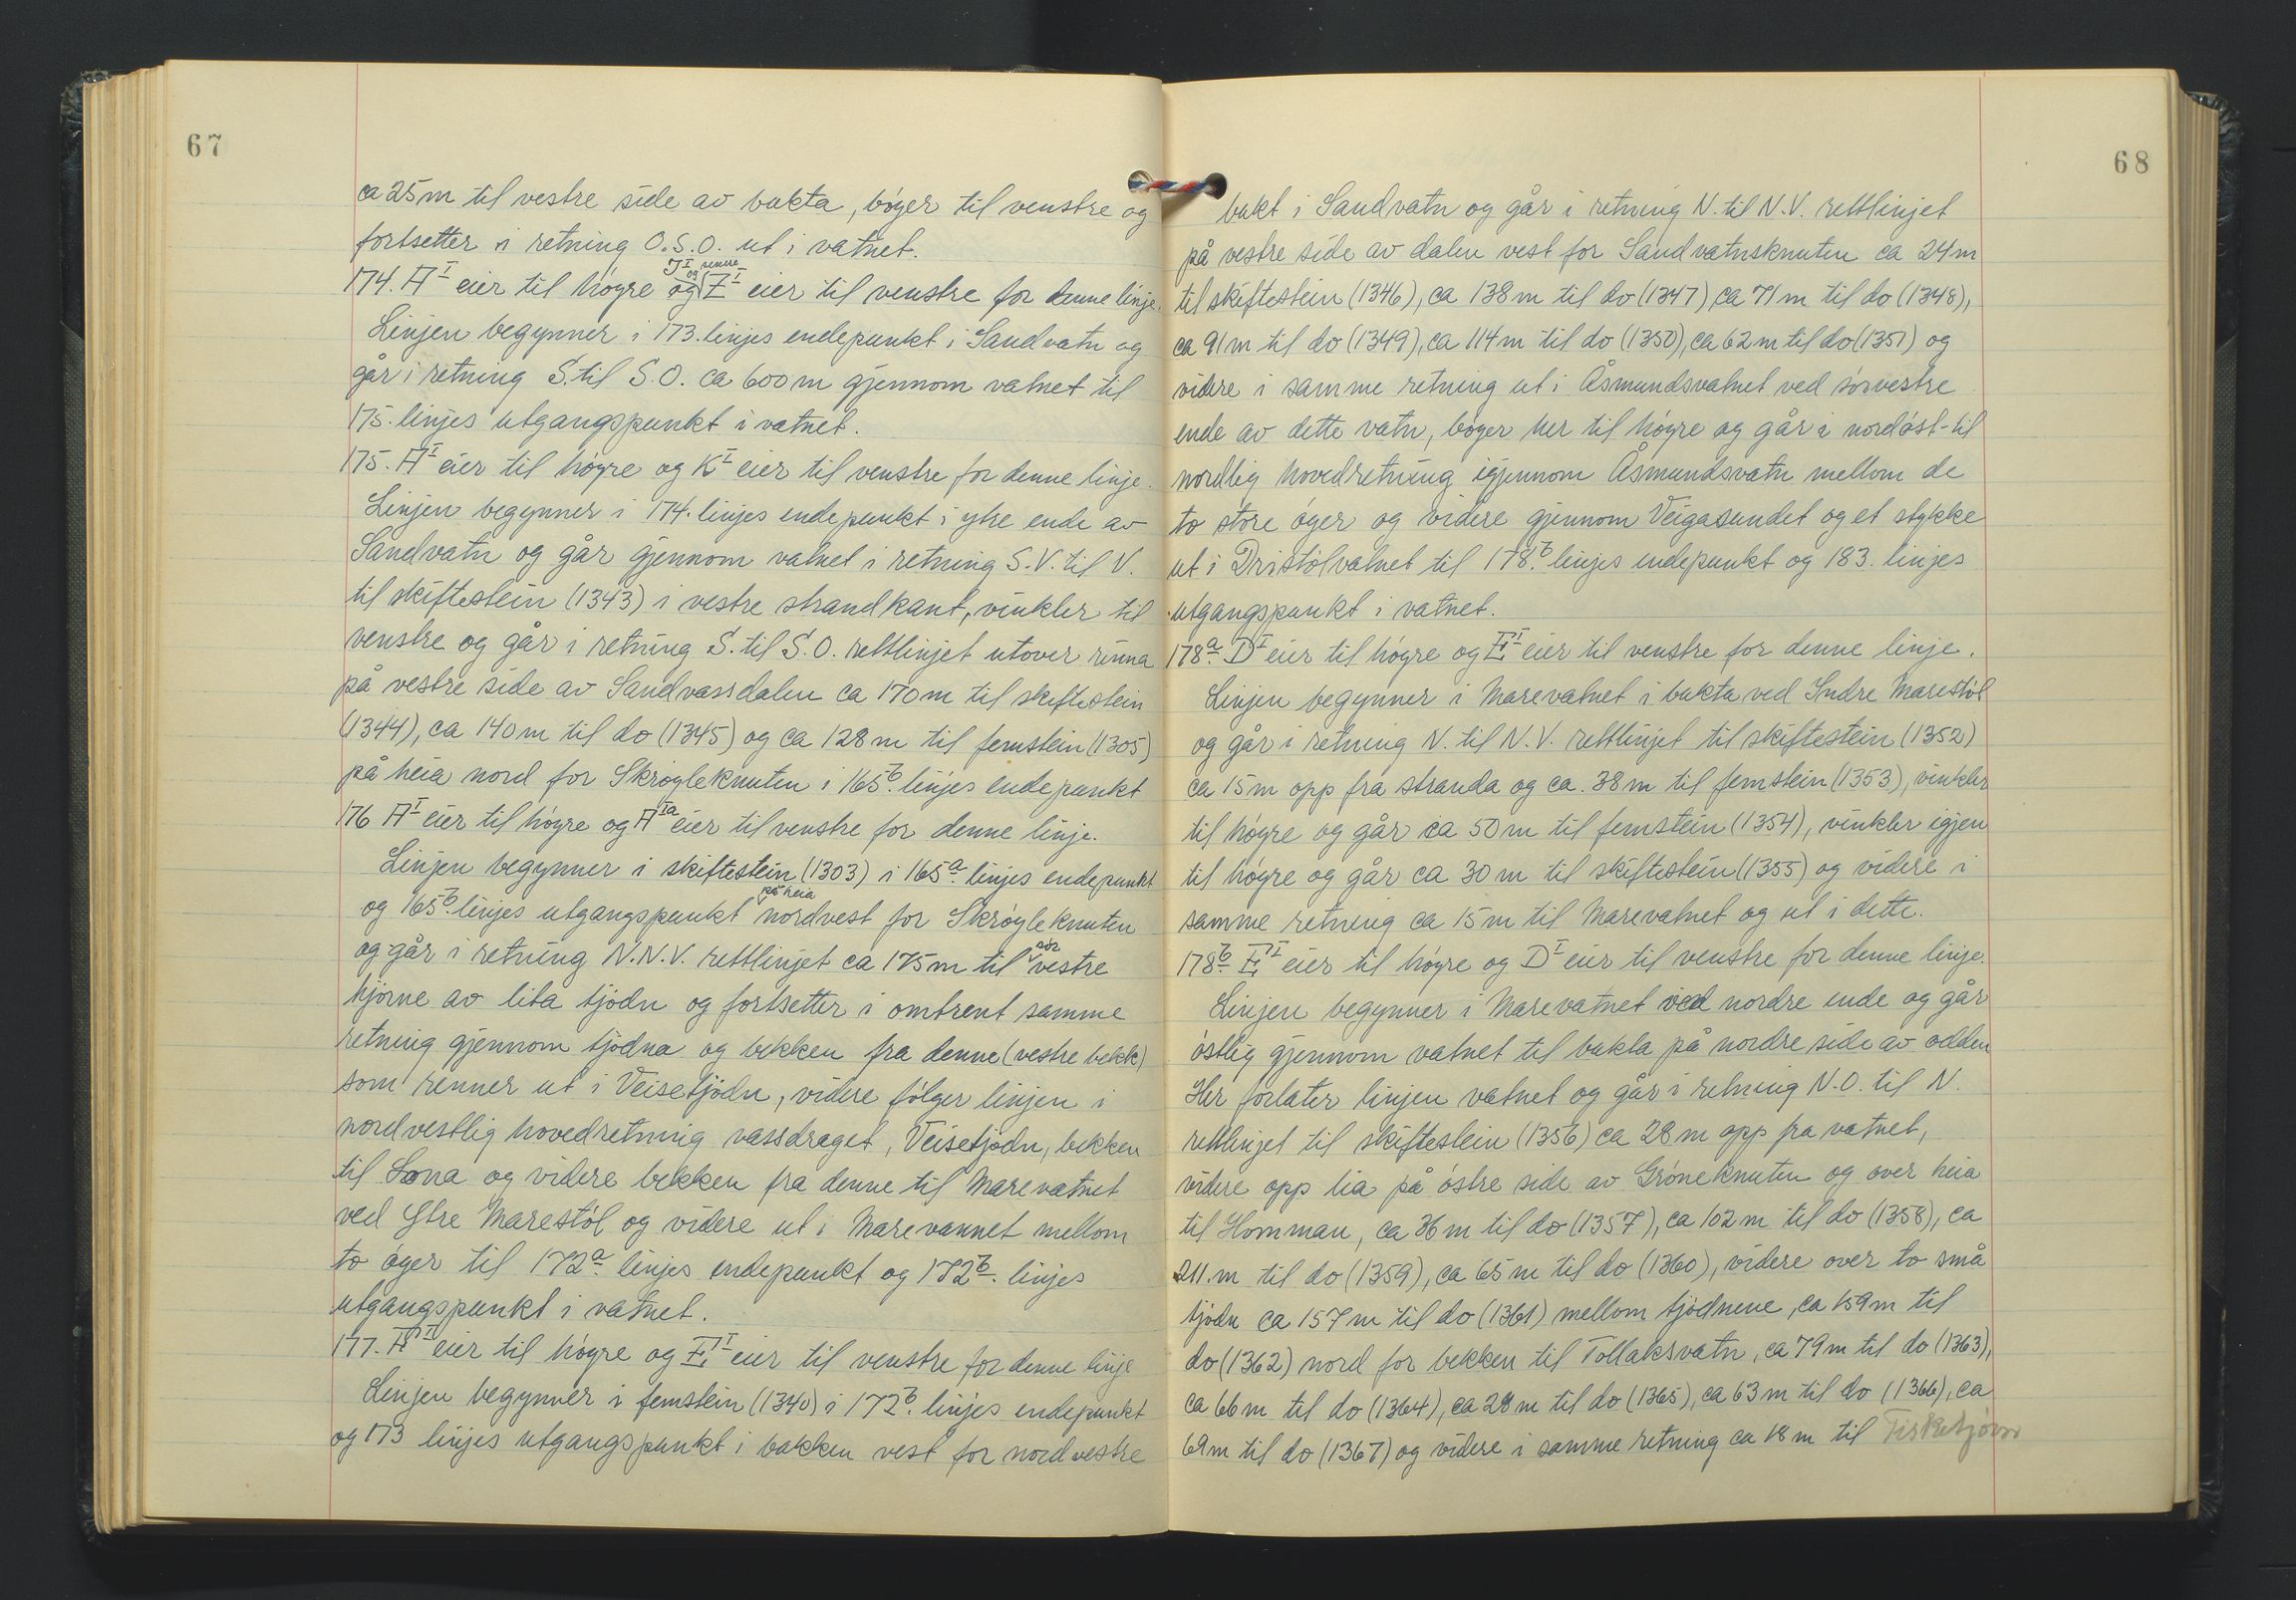 67
ca 25 m til vestre side av bukta, bøyer til venstre og
fortsetter i retning O.S.O. ut i vatnet.
J^I senere
og
174. A^I eier til høyre og Z^I eier til venstre for denne linje.
Linjen begynner i 173. linjes endepunkt i Sandvatn og
går i retning S. til S.O. ca 600 m gjennom vatnet til
175. linjes utgangspunkt i vatnet.
175. A^I eier til høyre og K^I eier til venstre for denne linje.
Linjen begynner i 174. linjes endepunkt i ytre ende av
Sandvatn og går gjennom vatnet i retning S.V. til V.
til skiftestein (1343) i vestre strandkant, vinkler til
venstre og går i retning S. til S.O. rettlinjet utover rinna
på vestre side av Sandvassdalen ca 170 m til skiftestein
(1344), ca 140 m til do (1345) og ca 128 m til femstein (1305)
på heia nord for Skrøyleknuten i 165b. linjes endepunkt
176 A^I eier til høyre og A^Ia eier til venstre for denne linje.
Linjen begynner i skiftestein (1303) i 165a. linjes endepunkt
på heia
og 165b. linjes utgangspunkt nordvest for Skrøyleknuten
og går i retning N.N.V. rettlinjet ca 175 m til sør vestre
hjørne av lita tjødn og fortsetter i omtrent samme
retning gjennom tjødna og bekken fra denne (vestre bekk)
som renner ut i Veisetjødn, videre følger linjen i
nordvestlig hovedretning vassdraget, Veisetjødn, bekken
til Lona og videre bekken fra denne til Marevatnet
ved Ytre Marestøl og videre ut i Marevannet mellom
to øyer til 172a. linjes endepunkt og 172b. linjes
utgangspunkt i vatnet.
177. A^I eier til høyre og E^I eier til venstre for denne linje
Linjen begynner i femstein (1340) i 172b. linjes endepunkt
og 173 linjes utgangspunkt i bakken vest for nordvestre
68
bukt i Sandvatn og går i retning N. til N.V. rettlinjet
på vestre side av dalen vest for Sandvatnsknuten ca 24 m
til skiftestein (1346), ca 138 m til do (1347) ca 71 m til do (1348),
ca 91 m til do (1349), ca 114 m til do (1350), ca 62 m til do (1351) og
videre i samme retning ut i Åsmundsvatnet ved sørvestre
ende av dette vatn, bøyer her til høyre og går i nordøst- til
nordlig hovedretning igjennom Åsmundsvatn mellom de
to store øyer og videre gjennom Veigasundet og et stykke
ut i Dristølvatnet til 178b. linjes endepunkt og 183. linjes
utgangspunkt i vatnet.
178a. D^I eier til høyre og E^I eier til venstre for denne linje.
Linjen begynner i Marevatnet i bukta ved Indre Marestøl
og går i retning N. til N.V. rettlinjet til skiftestein (1352)
ca 15 m opp fra stranda og ca. 38 m til femstein (1353), vinkler
til høyre og går ca 50 m til femstein (1354), vinkler igjen
til høyre og går ca 30 m til skiftestein (1355) og videre i
samme retning ca 15 m til Marevatnet og ut i dette.
178b. E^I eier til høyre og D^I eier til venstre for denne linje.
Linjen begynner i Marevatnet ved nordre ende og går
østlig gjennom vatnet til bukta på nordre side av odden
Her forlater linjen vatnet og går i retning N.O. til N.
rettlinjet til skiftestein (1356) ca 28 m opp fra vatnet,
videre opp lia på østre side av Grøneknuten og over heia
til Homman, ca 36 m til do (1357), ca 102 m til do (1358), ca
211. m til do (1359), ca 65 m til do (1360), videre over to små
tjødn ca 157 m til do (1361) mellom tjødnene, ca 159 m til
do (1362) nord for bekken til Tollaksvatn, ca 79 m til do (1363),
ca 66 m til do (1364), ca 28 m til do (1365), ca 63 m til do (1366), ca
69 m til do (1367) og videre i samme retning ca 18 m til Fisketjørn